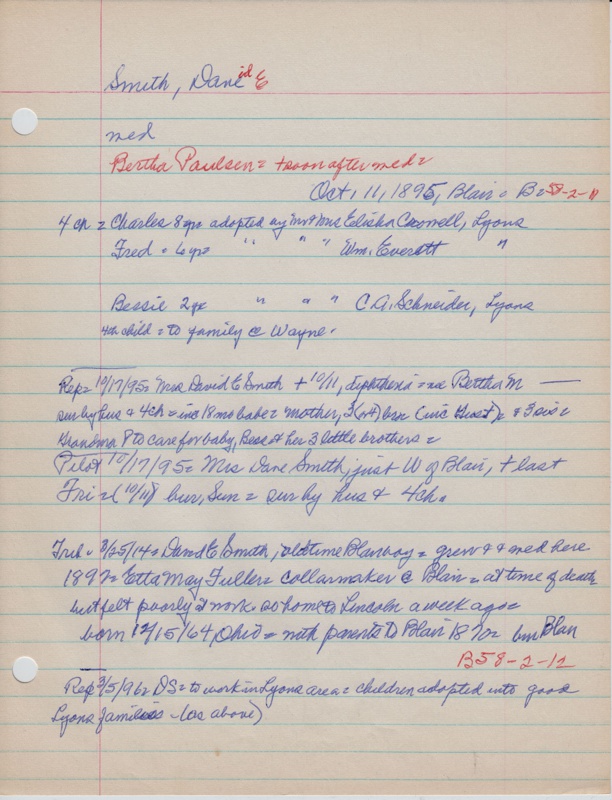 Smith, David E
med
Bertha Paulsen = + soon after med =
Oct, 11, 1895, Blair = B = 58-2-11
4 ch = Charles 8 yr = adopted by Mr & Mrs Elisha Crowell, Lyons
Fred = 6 yr = " " " Wm. Everett "
Bessie 2 yr " " " C.A. Schneider, Lyons
4th child = to family @ Wayne.
Rep = 10/17/95 = Mrs David E Smith + 10/11, diphtheria = nee Bertha M —
sur by hus & 4 ch = inc 18 mo babe = mother, 3 bro & 3 sis =
Grandma P to care for baby, Bess & her 3 little brothers =
Pilot 10/17/95 = Mrs Dave Smith, just W of Blair, + last
Fri = (10/11) bur, Sun = sur by hus & 4 ch.
Trib = 3/25/14 = David E Smith, oldtime Blair boy = grew & med here
1892 = Etta May Fuller = collarmaker @ Blair = at time of death
but felt poorly @ work so home to Lincoln a week ago =
born 12/15/64, Ohio = with parents to Blair 1870 = bur Blair
B58-2-12
Rep 3/5/96 = DS = to work in Lyons area = children adopted into good
Lyons families - (as above)